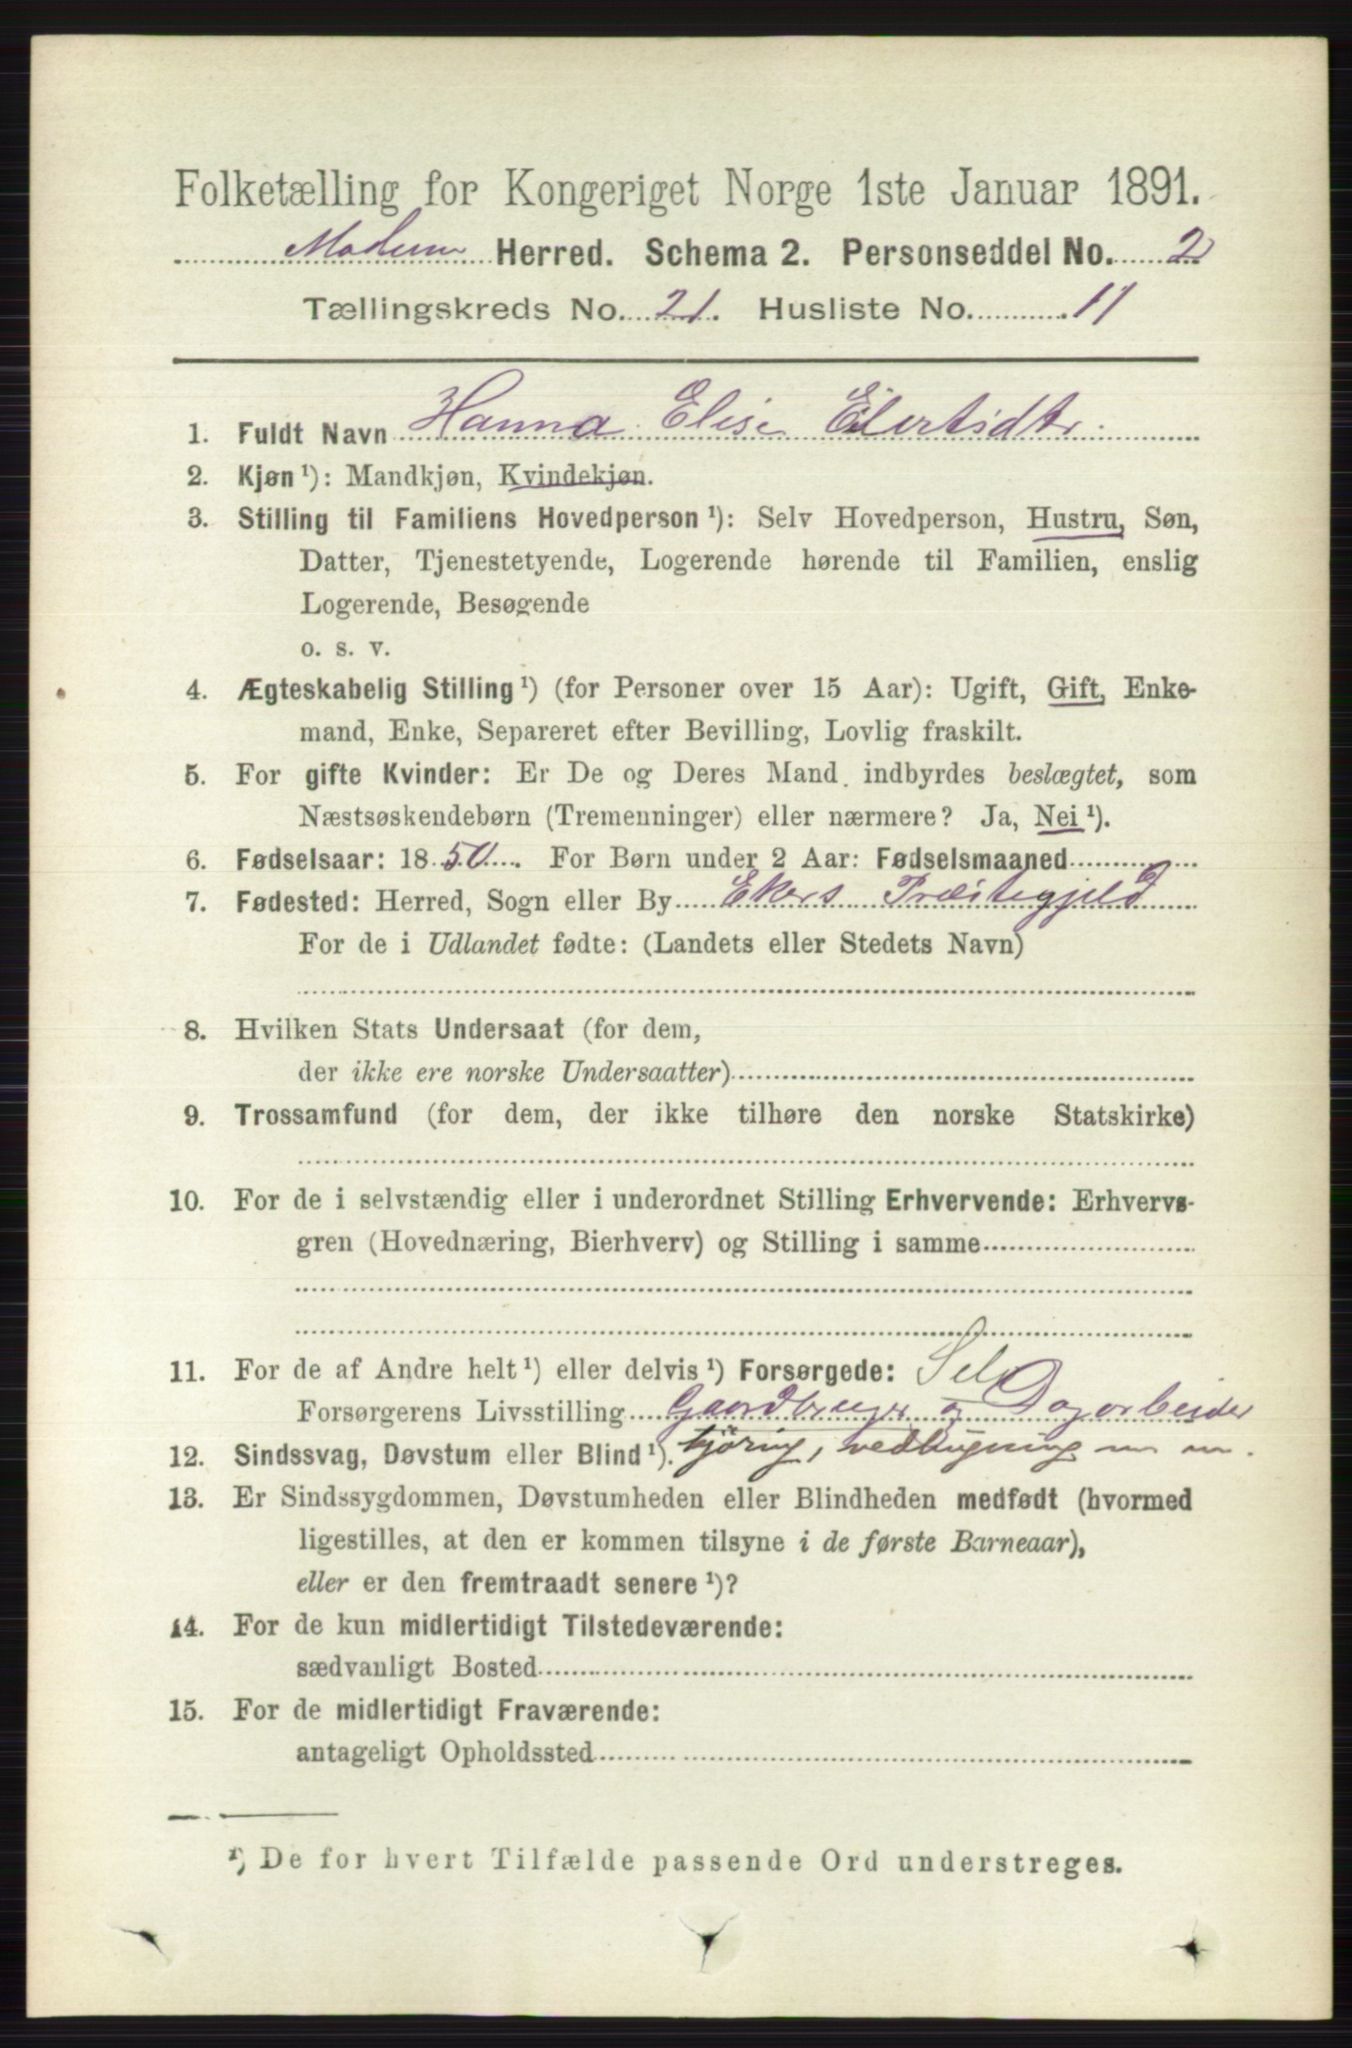 Folketælling for Kongeriget Norge 1ste Januar 1891.
Modum Herred. Schema 2. Personseddel No. 2
Tællingskreds No. 21. Husliste No. 11
1. Fuldt Navn Hanna Elise Eilertsdtr.
2. Kjøn ¹): Mandkjøn, Kvindekjøn.
3. Stilling til Familiens Hovedperson ¹): Selv Hovedperson, Hustru, Søn,
Datter, Tjenestetyende, Logerende hørende til Familien, enslig
Logerende, Besøgende
o. s. v.
4. Ægteskabelig Stilling ¹) (for Personer over 15 Aar): Ugift, Gift, Enke-
mand, Enke, Separeret efter Bevilling, Lovlig fraskilt.
5. For gifte Kvinder: Er De og Deres Mand indbyrdes beslægtet, som
Næstsøskendebørn (Tremenninger) eller nærmere? Ja, Nei ¹).
6. Fødselsaar: 1850. For Børn under 2 Aar: Fødselsmaaned
7. Fødested: Herred, Sogn eller By Ekers Præstegjeld
For de i Udlandet fødte: (Landets eller Stedets Navn)
8. Hvilken Stats Undersaat (for dem,
der ikke ere norske Undersaatter)
9. Trossamfund (for dem, der ikke tilhøre den norske Statskirke)
10. For de i selvstændig eller i underordnet Stilling Erhvervende: Erhvervs-
gren (Hovednæring, Bierhverv) og Stilling i samme
11. For de af Andre helt ¹) eller delvis ¹) Forsørgede: Selv
Forsørgerens Livsstilling Gaardbruger og Dagarbeider
12. Sindssvag, Døvstum eller Blind ¹). kjøring, vedhugning m m.
13. Er Sindssygdommen, Døvstumheden eller Blindheden medfødt (hvormed
ligestilles, at den er kommen tilsyne i de første Barneaar),
eller er den fremtraadt senere ¹)?
14. For de kun midlertidigt Tilstedeværende:
sædvanligt Bosted
15. For de midlertidigt Fraværende:
antageligt Opholdssted
¹) De for hvert Tilfælde passende Ord understreges.